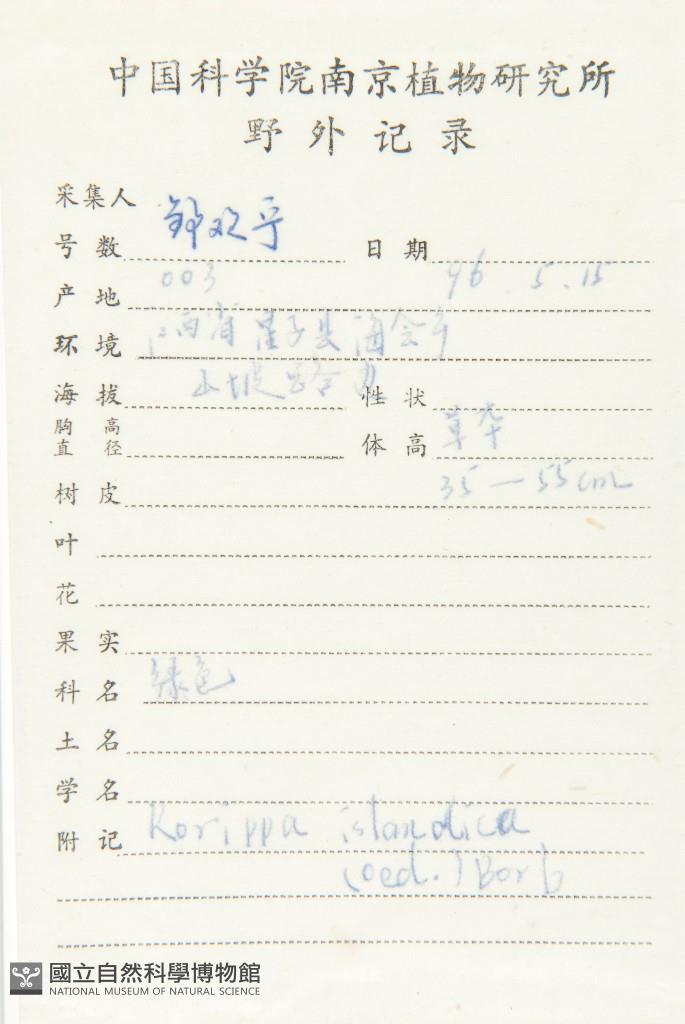 中国科学院南京植物研究所
野外记录
采集人
号数 日期
003 96.5.15
产地
江西省星子县海会乡
环境
山坡
海拔 性状
草本
胸高直径 体高
35—55cm
树皮
叶
花
果实
绿色
科名
土名
学名
Rorippa islandica
附记
(oed.) Borb
國立自然科學博物館
NATIONAL MUSEUM OF NATURAL SCIENCE